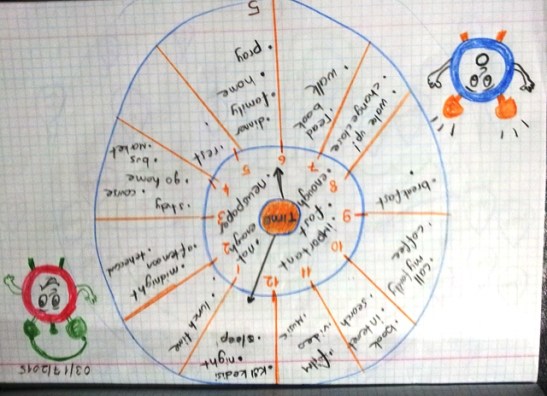 03/17/2015
TIME
newspaper
enough
fast
important
not
enough
12
night
sleep
1
lunch time
2
midnight
afternoon
3
study
course
4
go home
bus
market
5
rest
6
dinner
family
home
pray
7
read
book
walk
8
wake up!
change close
9
breakfast
10
coffee
call
my lady
11
book
internet
search
film
video
music
5